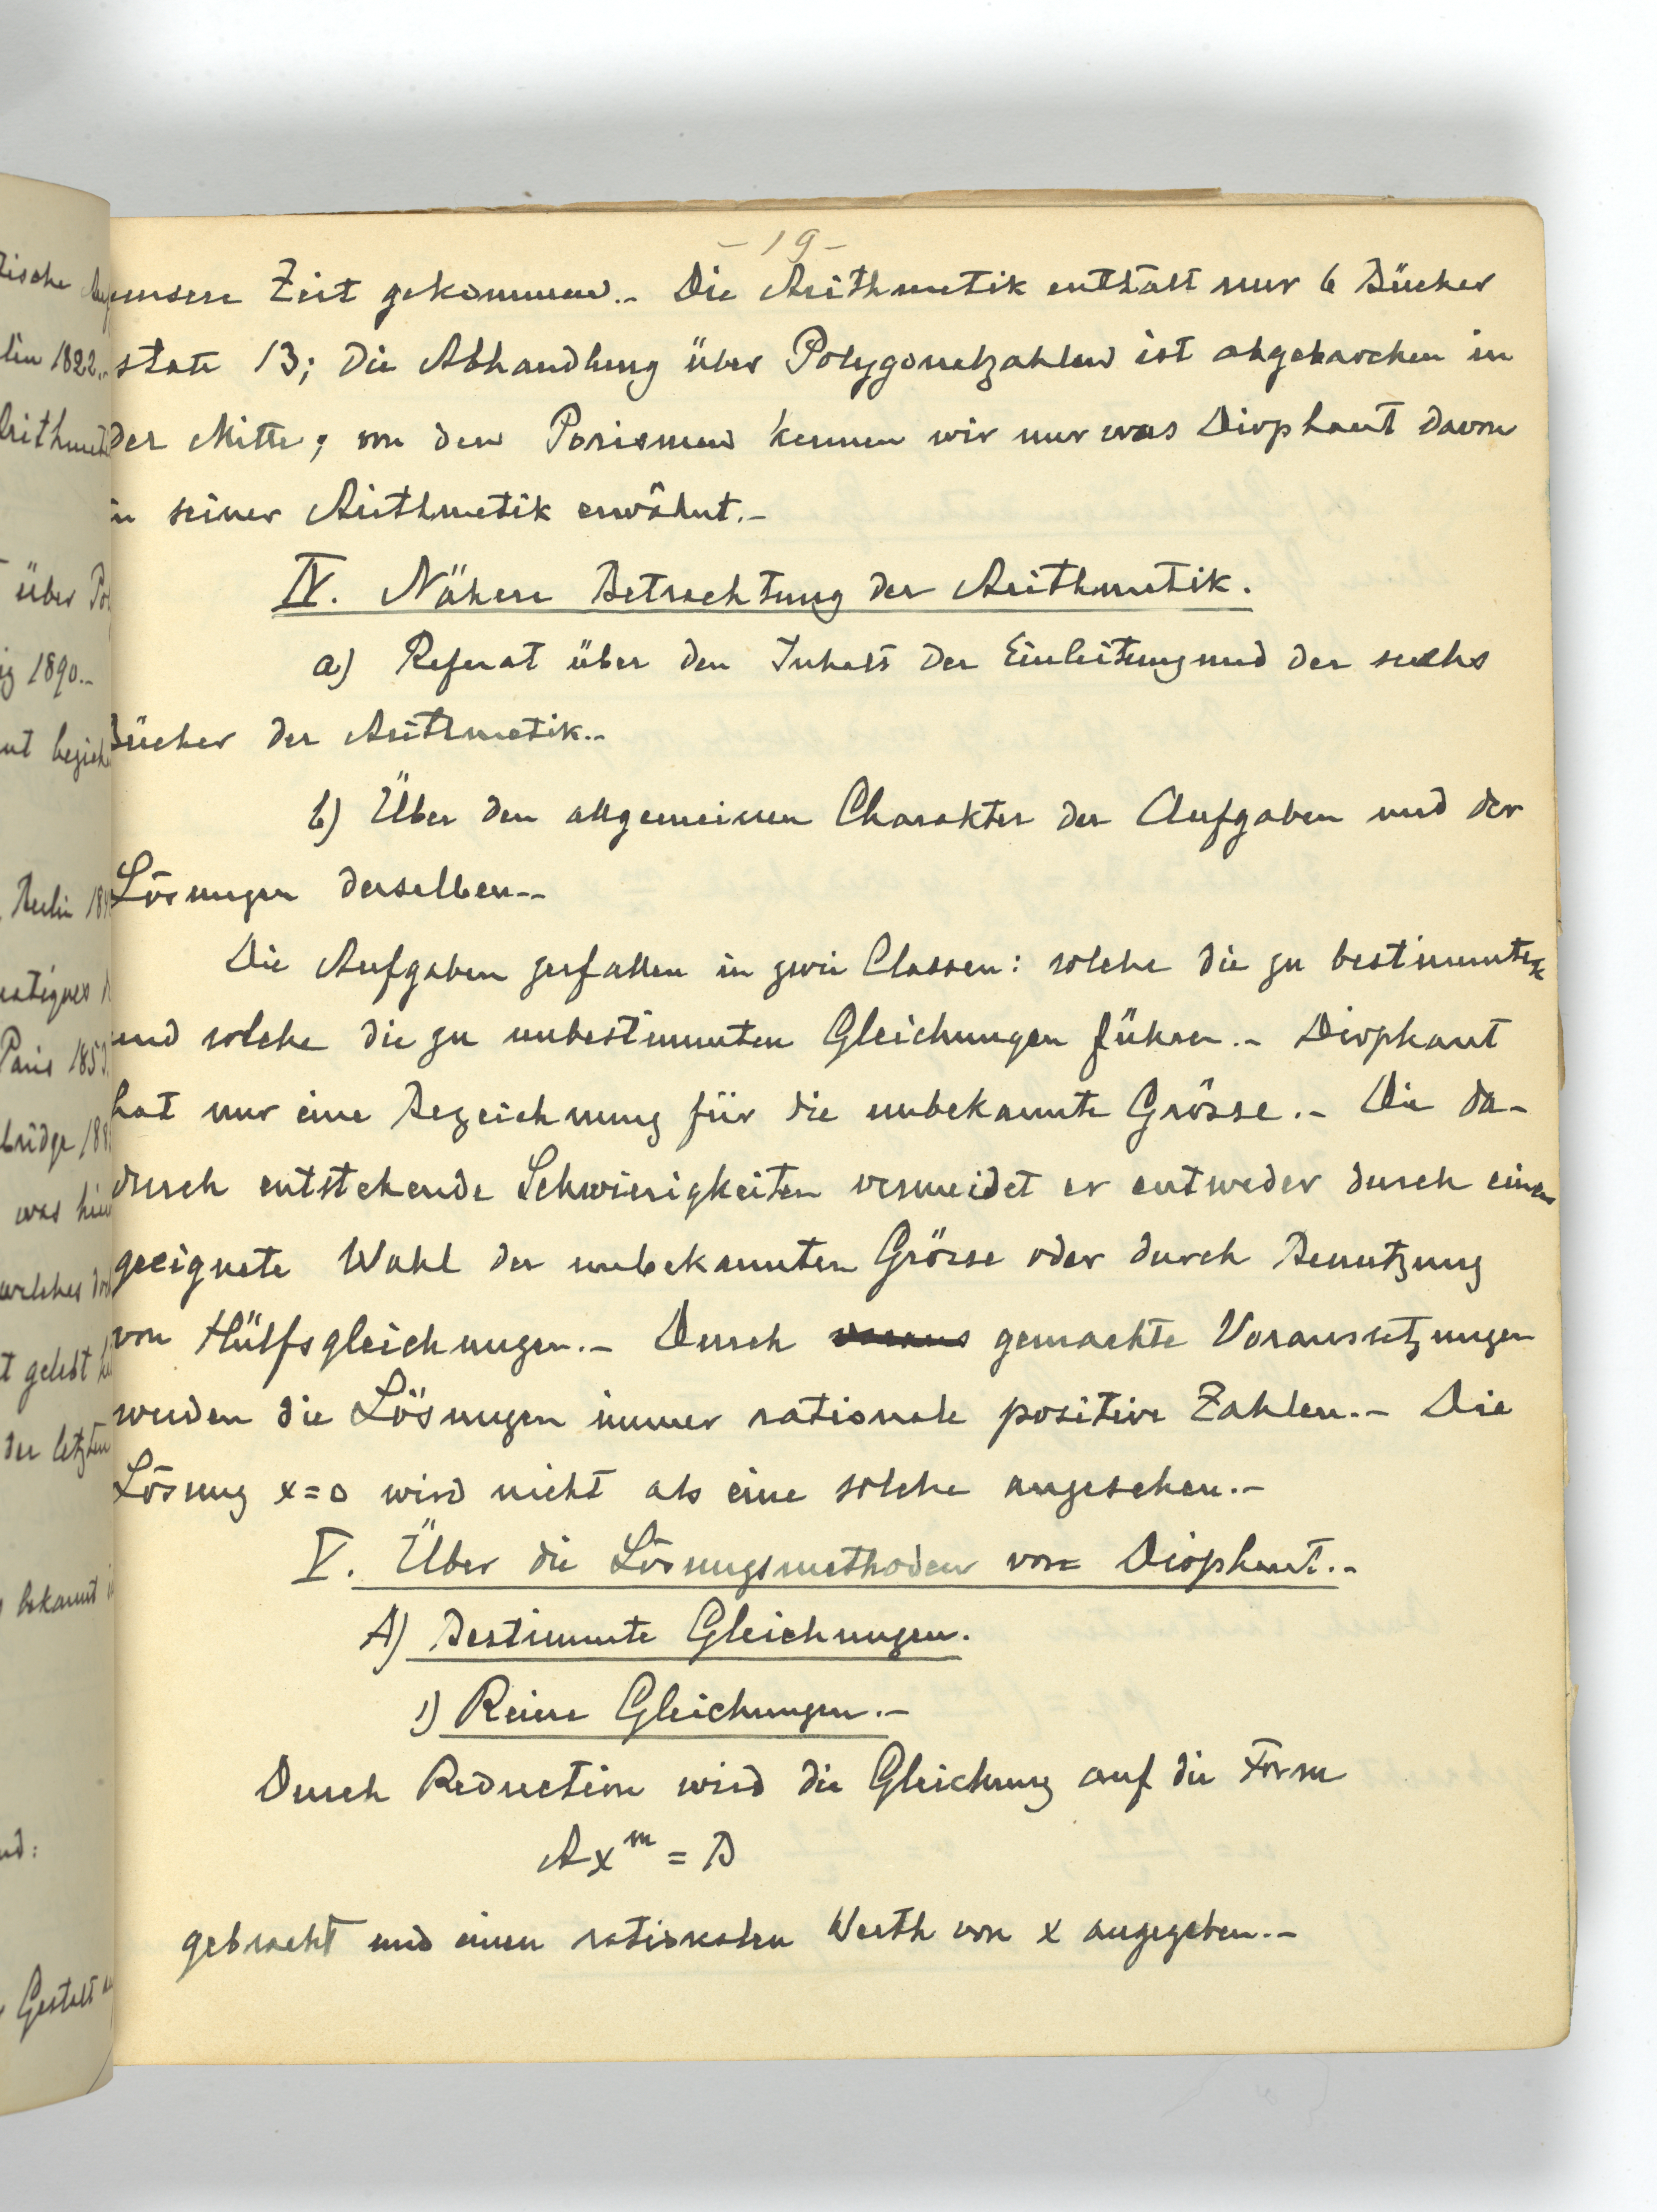 - 19 -
unsere Zeit gekommen.- Die Arithmetik enthält nur 6 Bücher
statt 13; die Abhandlung über Polygonalzahlen ist abgebrochen in
der Mitte; von den Porismen kennen wir nur was Diophant davon
in seiner Arithmetik erwähnt.-
IV. Nähere Betrachtung der Arithmetik.
a) Referat über den Inhalt der Einleitung und der sechs
Bücher der Arithmetik.-
b) Über den allgemeinen Charakter der Aufgaben und der
Lösungen derselben.-
Die Aufgaben zerfallen in zwei Classen: solche die zu bestimmten
und solche die zu unbestimmten Gleichungen führen.- Diophant
hat nur eine Bezeichnung für die unbekannte Grösse.- Die da-
durch entstehende Schwierigkeiten vermeidet er entweder durch einen
geeignete Wahl der unbekannten Grösse oder durch Benutzung
von Hülfsgleichungen.- Durch gemachte Voraussetzungen
werden die Lösungen immer rationale positive Zahlen.- Die
Lösung x=0 wird nicht als eine solche angesehen.-
V. Über die Lösungsmethoden von Diophant.-
A) Bestimmte Gleichungen.
1) Reine Gleichungen.-
Durch Reduction wird die Gleichung auf die Form
Ax^m = B
gebracht und einen rationalen Werth von x angegeben.-
tische
lin 1822.-
Arithmet
über Po
ig 1890.-
nt bezieh
Berlin 18
matiques
Paris 185
bridge 18
was hier
welches
t gelebt
der letzten
bekannt
nd:
Gestalt